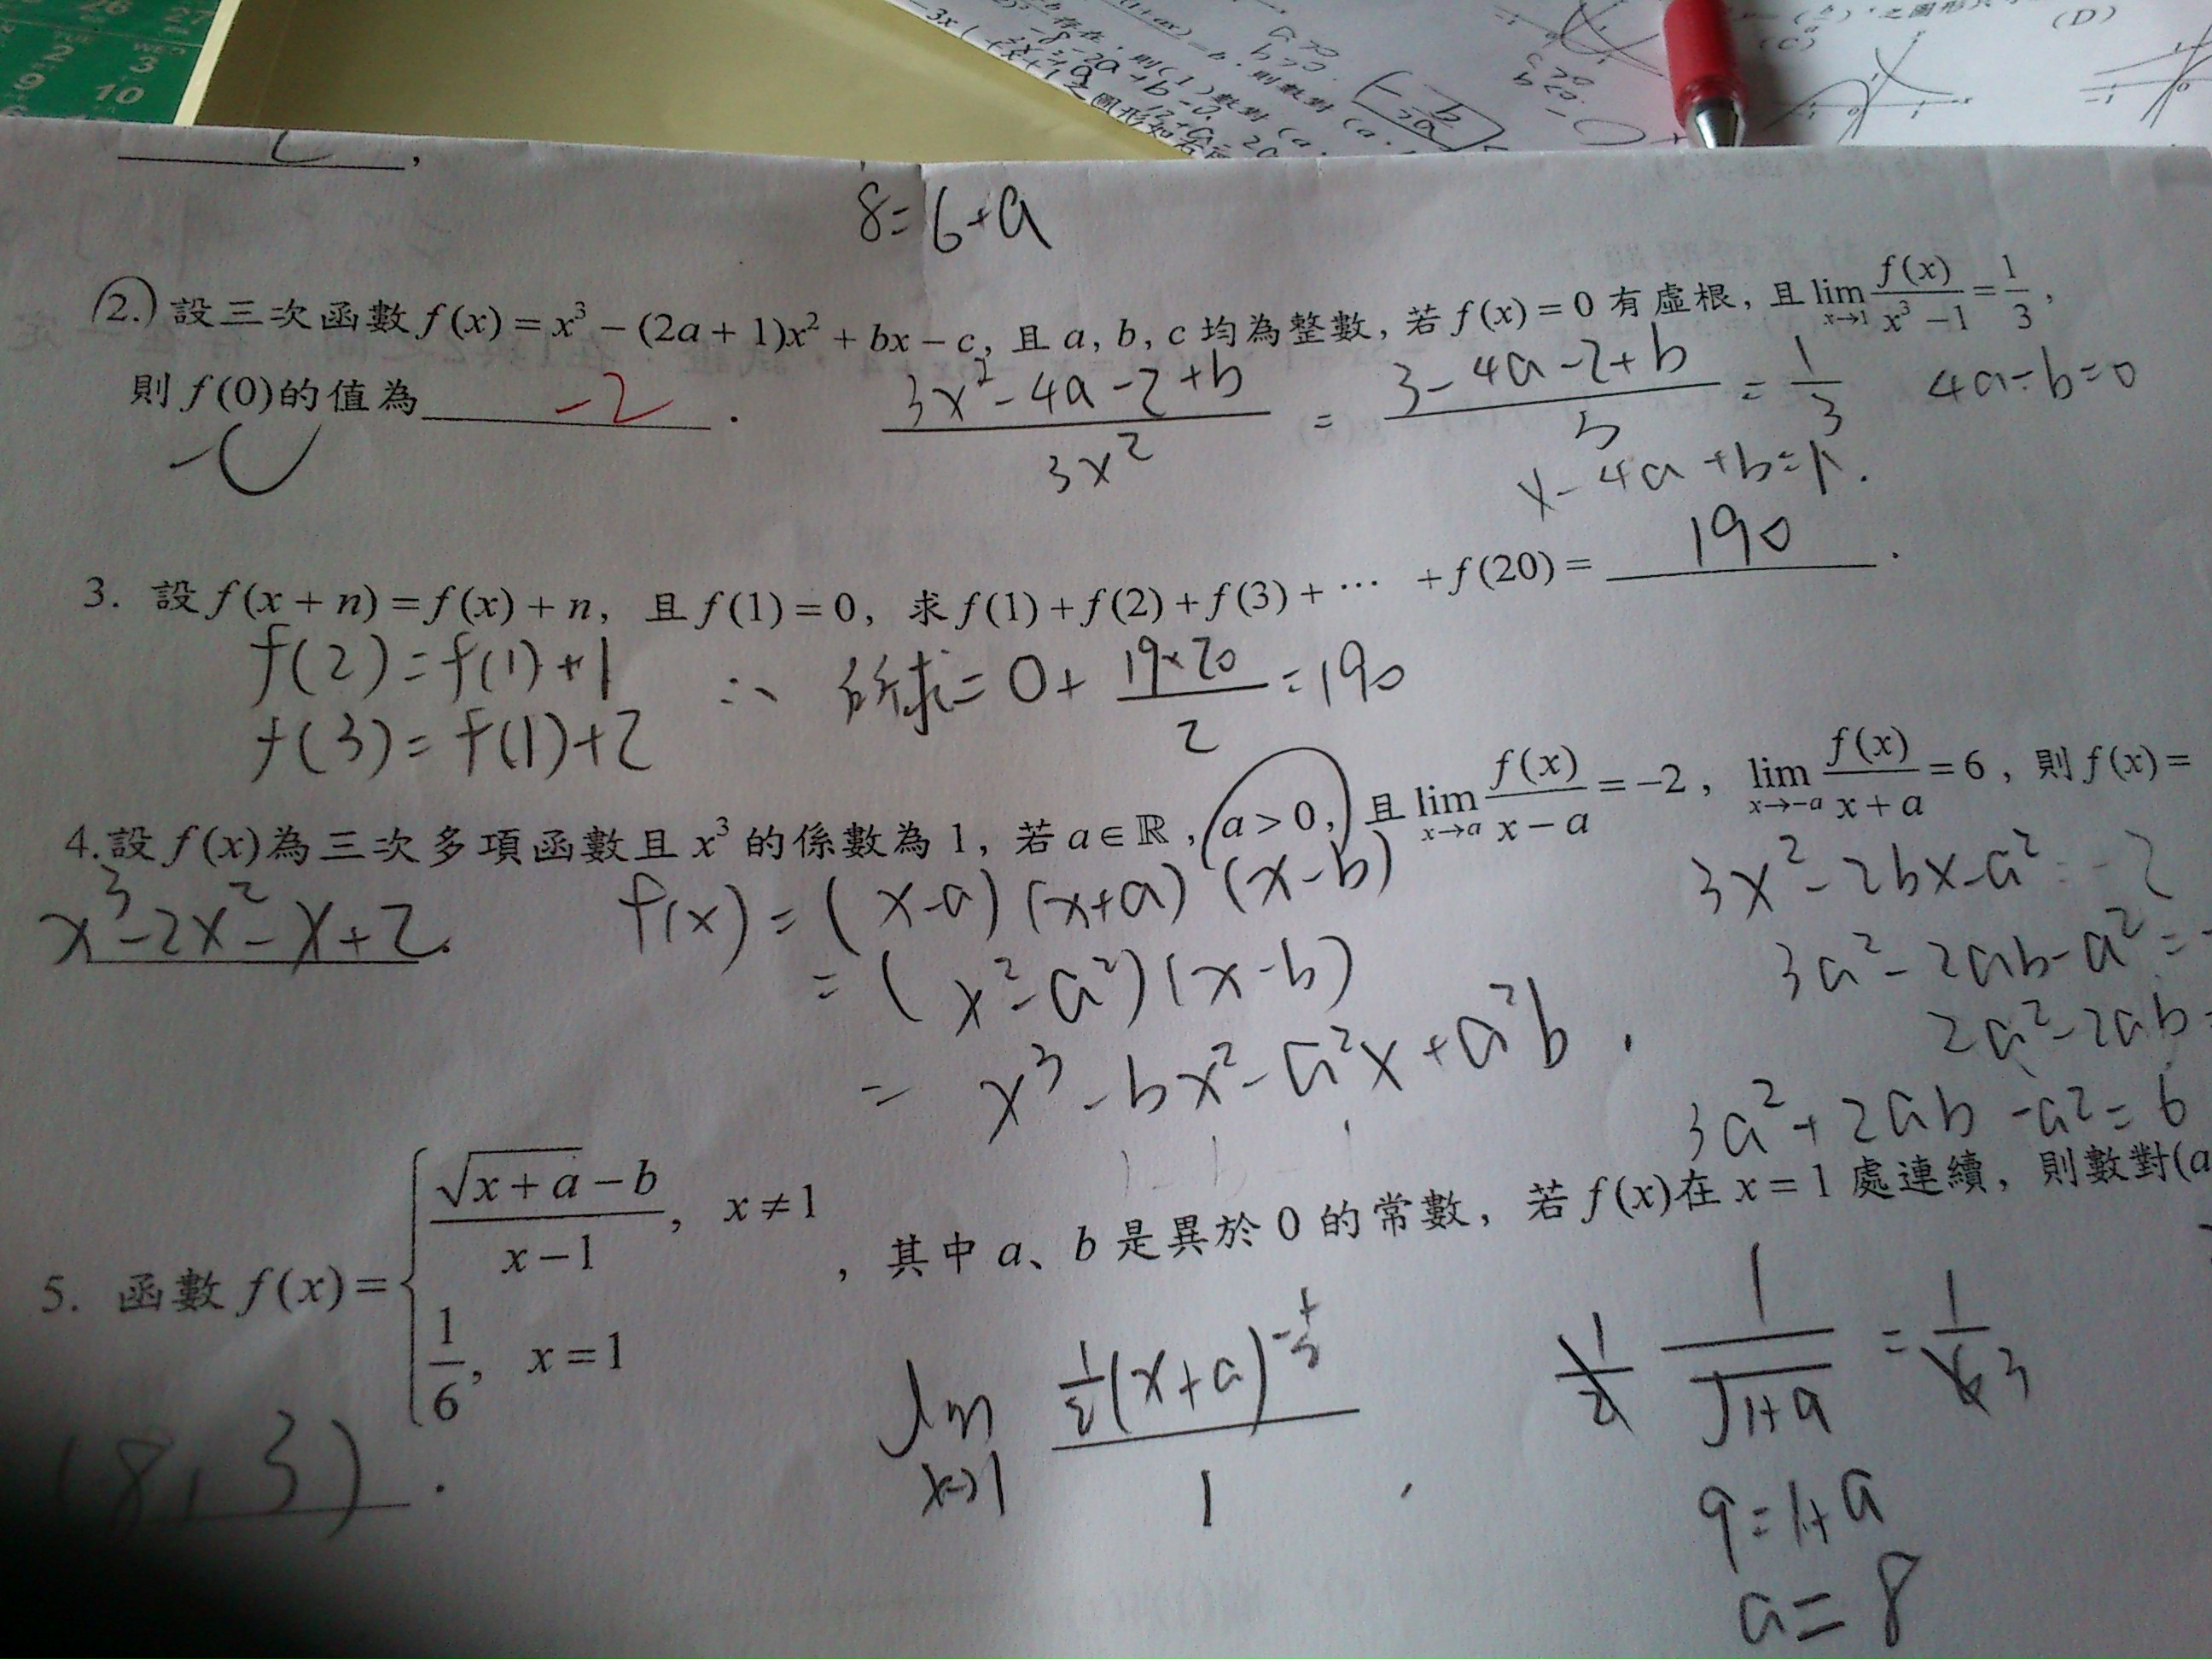 26 27
TUE WED
2 3
9 10
(D)
(C)
8=6+a
2. 設三次函數 f(x) = x³ − (2a + 1)x² + bx − c, 且 a, b, c 均為整數, 若 f(x) = 0 有虛根, 且 lim_{x→1} f(x)/(x³ − 1) = 1/3,
則 f(0)的值為 -2 .
-c
(3x²-4a-2+b)/(3x²) = (3-4a-2+b)/3 = 1/3
4a-b=0
1-4a+b=1.
3. 設 f(x + n) = f(x) + n, 且 f(1) = 0, 求 f(1) + f(2) + f(3) + ⋯ + f(20) = 190 .
f(2)=f(1)+1
f(3)=f(1)+2
∴ 所求=0+(19×20)/2=190
4.設 f(x)為三次多項函數且 x³ 的係數為 1, 若 a∈ℝ, a > 0, 且 lim_{x→a} f(x)/(x − a) = −2, lim_{x→−a} f(x)/(x + a) = 6, 則 f(x) =
x³-2x²-x+2 .
f(x)=(x-a)(x+a)(x-b)
=(x²-a²)(x-b)
= x³-bx²-a²x+a²b
3x²-2bx-a²=-2
3a²-2ab-a²=
2a²-2ab=
3a²+2ab-a²=6
5. 函數 f(x) = { (√(x + a) − b)/(x − 1), x ≠ 1
1/6, x = 1
, 其中 a、b 是異於 0 的常數, 若 f(x)在 x = 1 處連續, 則數對(a
(8,3) .
lim_{x→1} (1/2(x+a)^{-1/2})/1
1/2 1/√(1+a) = 1/6 3
9=1+a
a=8